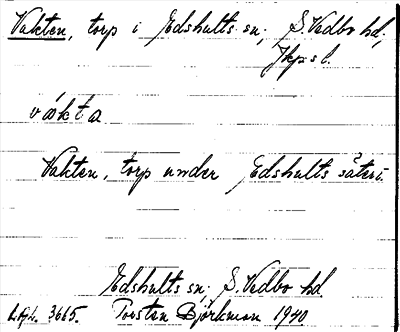 Vakten, torp i Edshults sn; S. Vedbo hd;
Jkps l.
våkta
Vakten, torp under Edshults säteri.
Edshults sn; S. Vedbo hd
3665. Torsten Björkman 1940